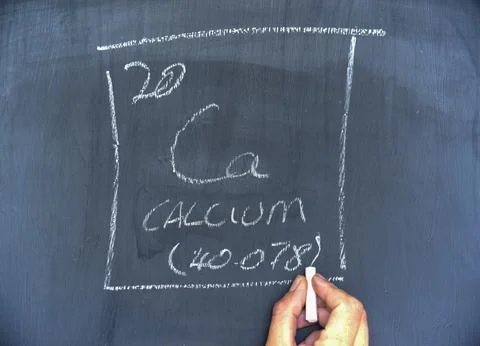 20
Ca
CALCIUM
(40.078)